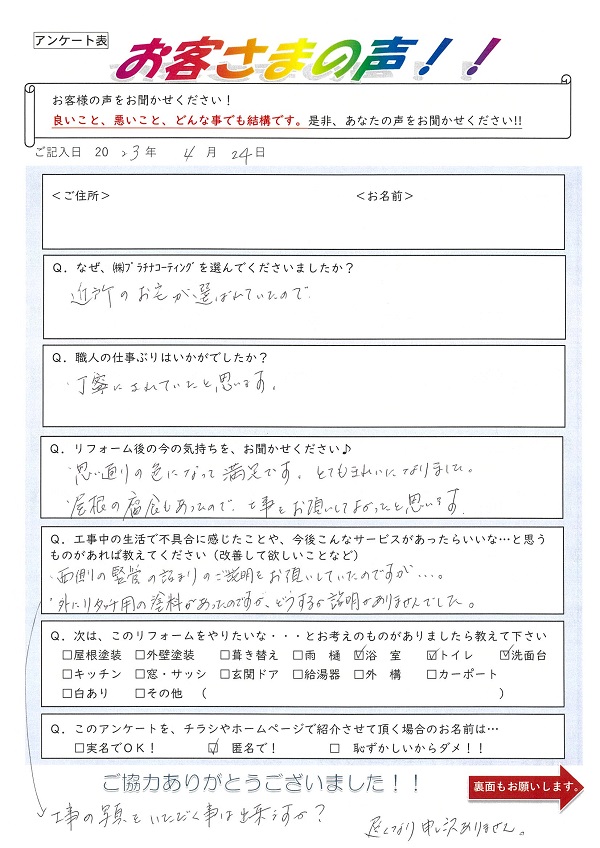 アンケート表
お客さまの声！！
お客様の声をお聞かせください！
良いこと、悪いこと、どんな事でも結構です。是非、あなたの声をお聞かせください!!
ご記入日 2023年 4月 24日
＜ご住所＞ ＜お名前＞
Q．なぜ、㈱ﾌﾟﾗﾁﾅｺｰﾃｨﾝｸﾞを選んでくださいましたか？
近所のお宅が選ばれていたので
Q．職人の仕事ぶりはいかがでしたか？
・丁寧にされていたと思います。
Q．リフォーム後の今の気持ちを、お聞かせください♪
・思い通りの色になって満足です。とてもきれいになりました。
・屋根の腐食もあったので、工事をお願いしてよかったと思います。
Q．工事中の生活で不具合に感じたことや、今後こんなサービスがあったらいいな…と思う
ものがあれば教えてください（改善して欲しいことなど）
・西側の竪管の詰まりのご説明をお願いしていたのですが…。
・外にリタッチ用の塗料があったのですが、どうするか説明がありませんでした。
Q．次は、このリフォームをやりたいな・・・とお考えのものがありましたら教えて下さい
□屋根塗装 □外壁塗装 □葺き替え □雨 樋 ☑浴 室 ☑トイレ ☑洗面台
□キッチン □窓・サッシ □玄関ドア □給湯器 □外 構 □カーポート
□白あり □その他 （ ）
Q．このアンケートを、チラシやホームページで紹介させて頂く場合のお名前は…
□実名でOK！ ☑ 匿名で！ □ 恥ずかしいからダメ！！
ご協力ありがとうございました！！
裏面もお願いします。
工事の写真をいただく事は出来ますか？
遅くなり申し訳ありません。